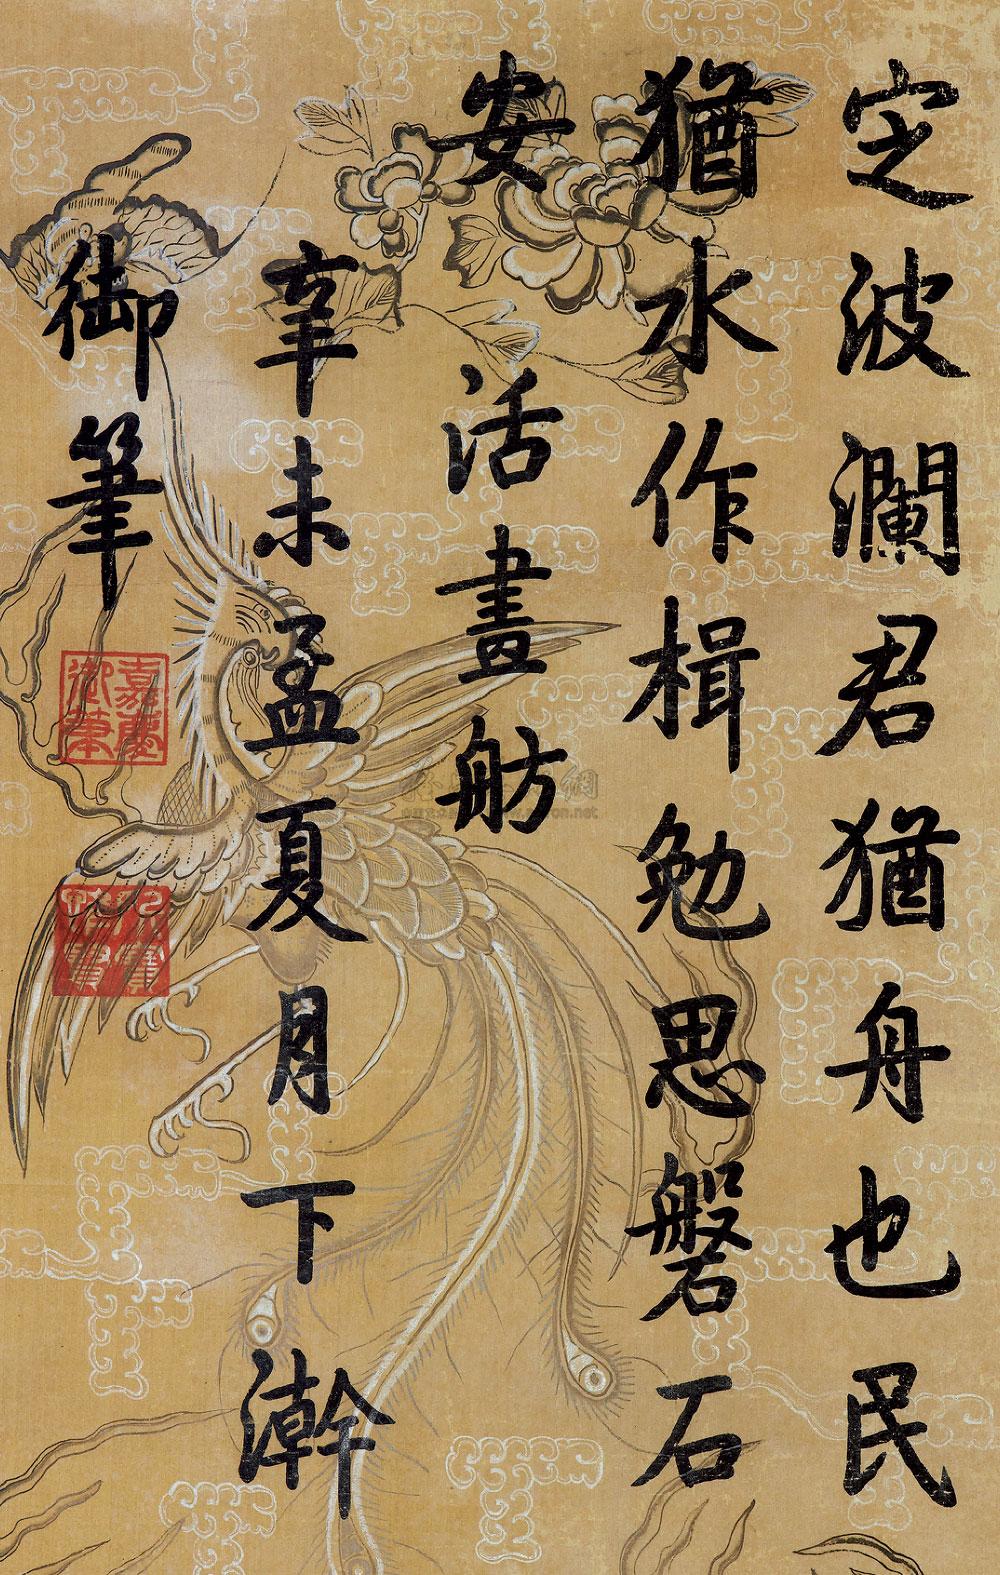 定波瀾君猶舟也民
猶水作楫勉思磐石
安活畫舫
辛未孟夏月下澣
御筆
嘉慶御筆